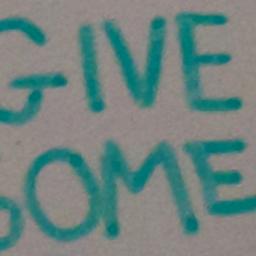 GIVE
SOME